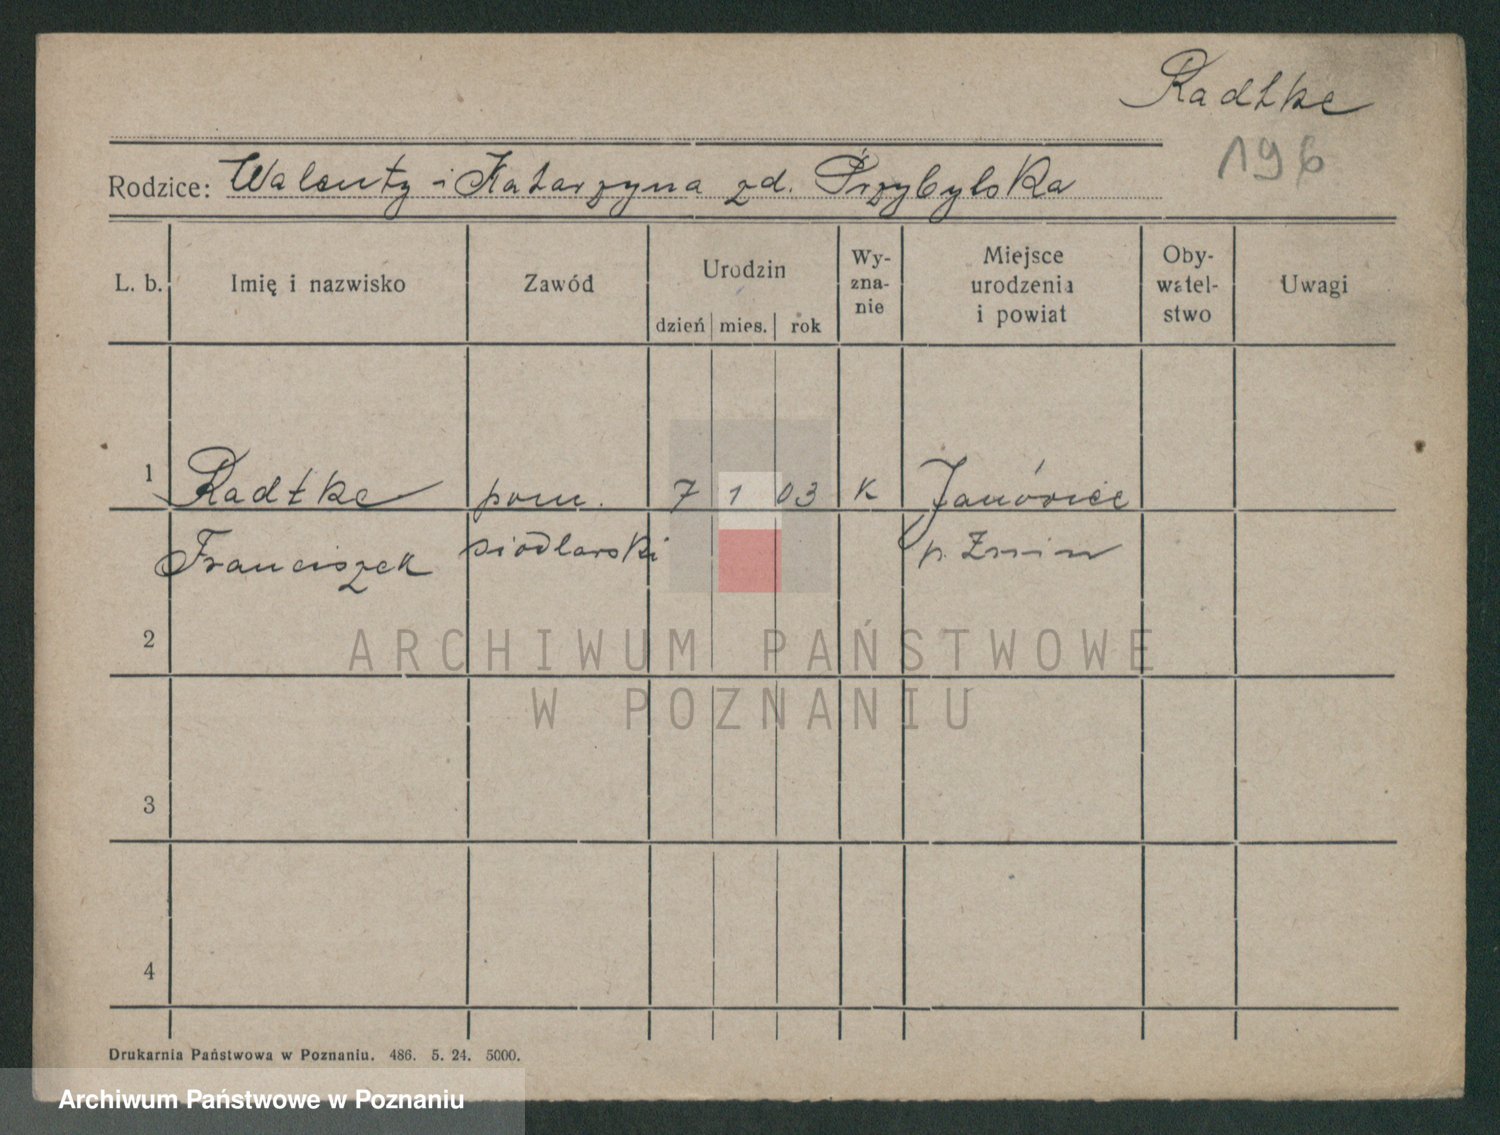 Radtke
196
Rodzice: Walenty i Katarzyna zd. Przybylska
L. b.
Imię i nazwisko
Zawód
Urodzin
dzień mies. rok
Wy-
zna-
nie
Miejsce
urodzenia
i powiat
Oby-
watel-
stwo
Uwagi
1 Radtke pom. 7 1 03 K Janówiec
Franciszek siodlarski p. Żnin
2
ARCHIWUM PAŃSTWOWE
W POZNANIU
3
4
Drukarnia Państwowa w Poznaniu. 486. 5. 24. 5000.
Archiwum Państwowe w Poznaniu